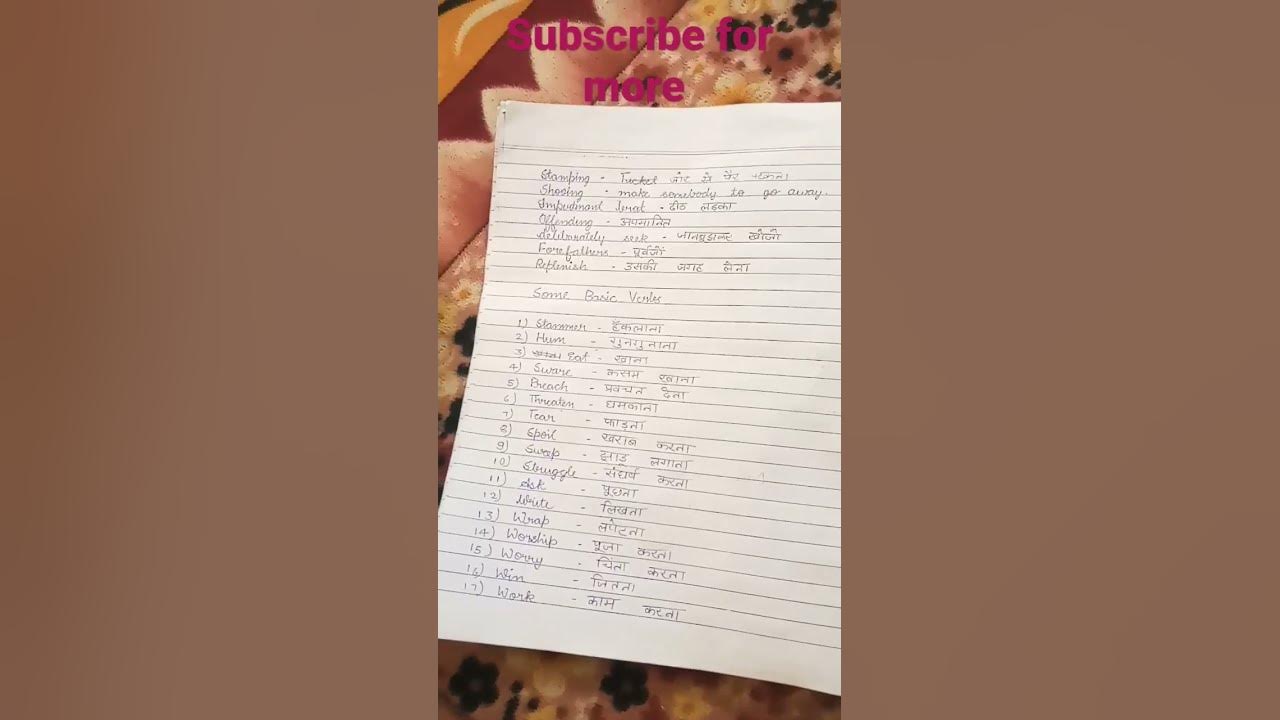 Subscribe for
more
Stamping - जोर से पैर पटकना
Shooing - make somebody to go away.
Impudmant brat - ढीठ लड़का
Offending - अपमानित
deliberately seek - जानबूझकर खोजो
Forefathers - पूर्वजों
Replenish - उसकी जगह लेना
Some Basic Verbs
1) Stammer - हकलाना
2) Hum - गुनगुनाना
3) Eat - खाना
4) Sware - कसम खाना
5) Preach - प्रवचन देना
6) Threaten - धमकाना
7) Tear - फाड़ना
8) Spoil - खराब करना
9) Swap - झाड़ू लगाना
10) Struggle - संघर्ष करना
11) Ask - पुछना
12) Write - लिखना
13) Wrap - लपेटना
14) Worship - पूजा करना
15) Worry - चिंता करना
16) Win - जितना
17) Work - काम करना